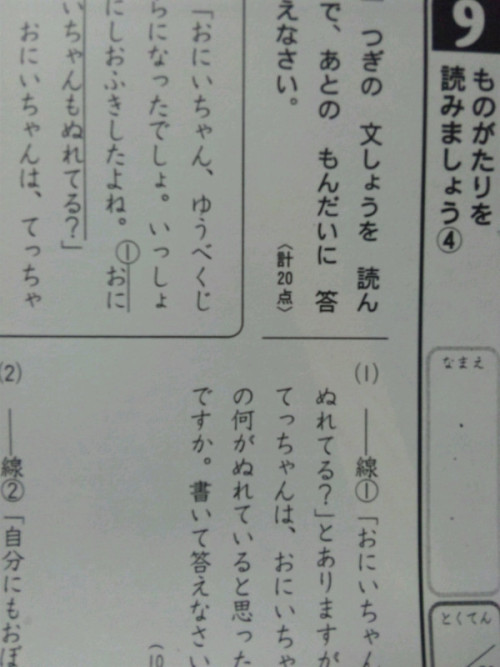 9
ものがたりを
読みましょう④
なまえ
とくてん
つぎの 文しょうを 読ん
で、あとの もんだいに 答
えなさい。
〈計20点〉
「おにいちゃん、ゆうべくじ
らになったでしょ。いっしょ
にしおふきしたよね。①おに
いちゃんもぬれてる?」
おにいちゃんは、てっちゃ
(1) ――線①「おにいちゃん
ぬれてる?」とありますが
てっちゃんは、おにいちゃ
の何がぬれていると思った
ですか。書いて答えなさい
(10
(2) ――線②「自分にもおぼ